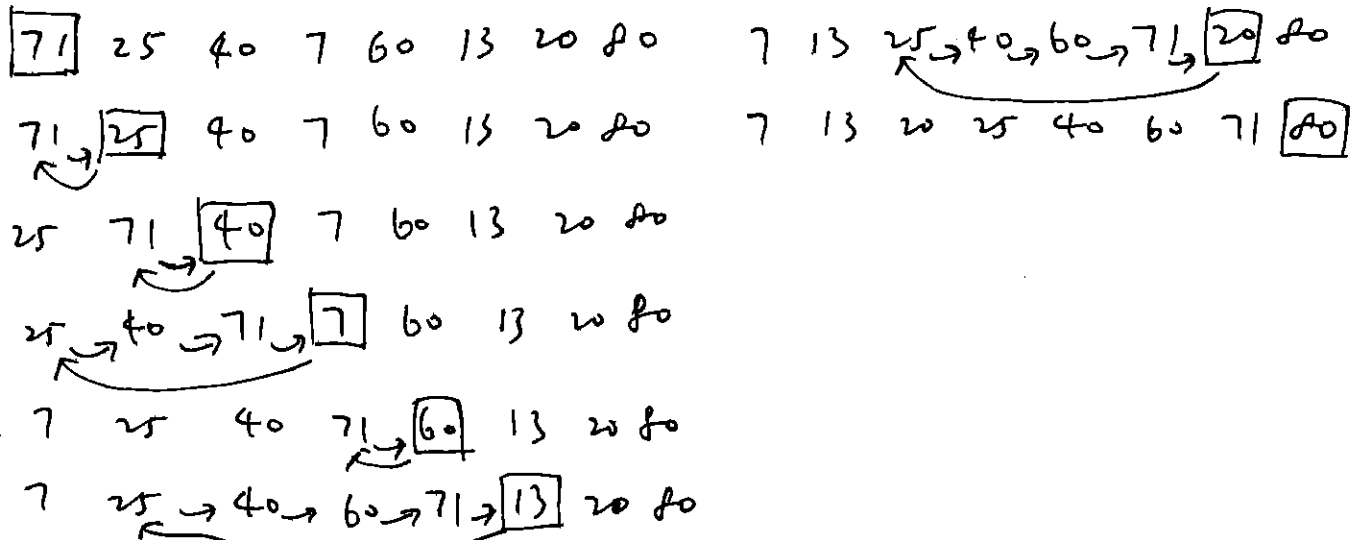 71 25 40 7 60 13 20 80
71 25 40 7 60 13 20 80
25 71 40 7 60 13 20 80
25 40 71 7 60 13 20 80
7 25 40 71 60 13 20 80
7 25 40 60 71 13 20 80
7 13 25 40 60 71 20 80
7 13 20 25 40 60 71 80